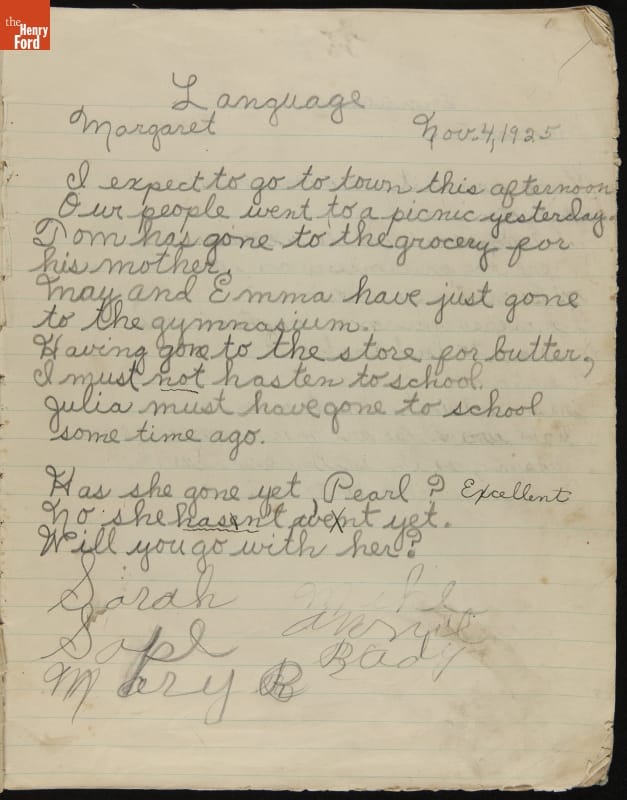 the
Henry
Ford
Language
Margaret Nov. 4, 1925
I expect to go to town this afternoon
Our people went to a picnic yesterday.
Tom has gone to the grocery for
his mother.
May and Emma have just gone
to the gymnasium.
Having gone to the store for butter,
I must not hasten to school.
Julia must have gone to school
some time ago.
Has she gone yet, Pearl? Excellent
No she hasn't went yet.
Will you go with her?
Sarah
Mary R